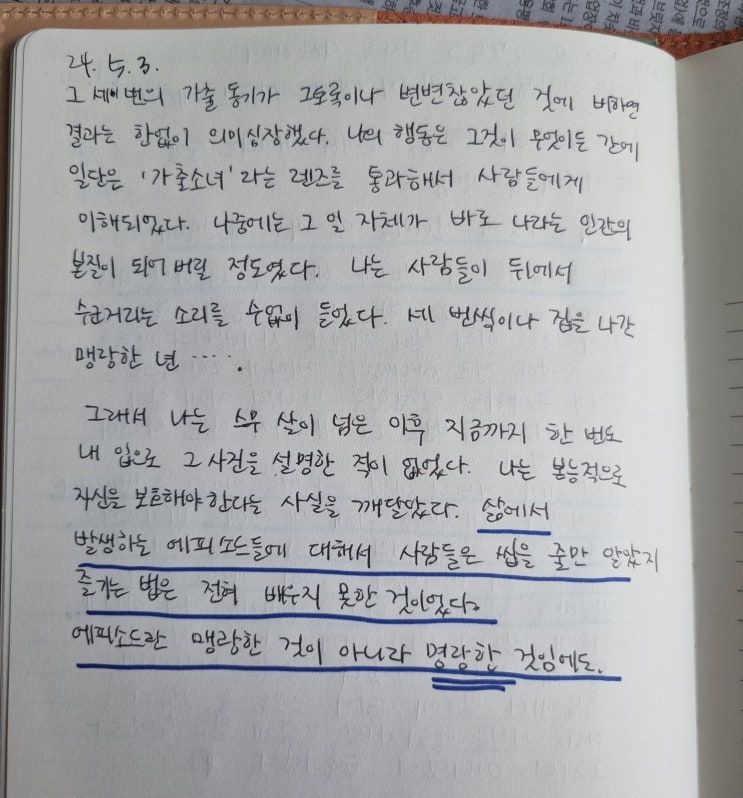 24. 5. 3.
그 세 번의 가출 동기가 그토록이나 변변찮았던 것에 비하면
결과는 한없이 의미심장했다. 나의 행동은 그것이 무엇이든 간에
일단은 '가출소녀'라는 렌즈를 통과해서 사람들에게
이해되었다. 나중에는 그 일 자체가 바로 나라는 인간의
본질이 되어버릴 정도였다. 나는 사람들이 뒤에서
수군거리는 소리를 수없이 들었다. 세 번씩이나 집을 나간
맹랑한 년 ‥‥.
그래서 나는 스무 살이 넘은 이후 지금까지 한 번도
내 입으로 그 사건을 설명한 적이 없었다. 나는 본능적으로
자신을 보호해야한다는 사실을 깨달았다. 삶에서
발생하는 에피소드들에 대해서 사람들은 씹을 줄만 알았지
즐기는 법은 전혀 배우지 못한 것이었다.
에피소드란 맹랑한 것이 아니라 명랑한 것임에도.